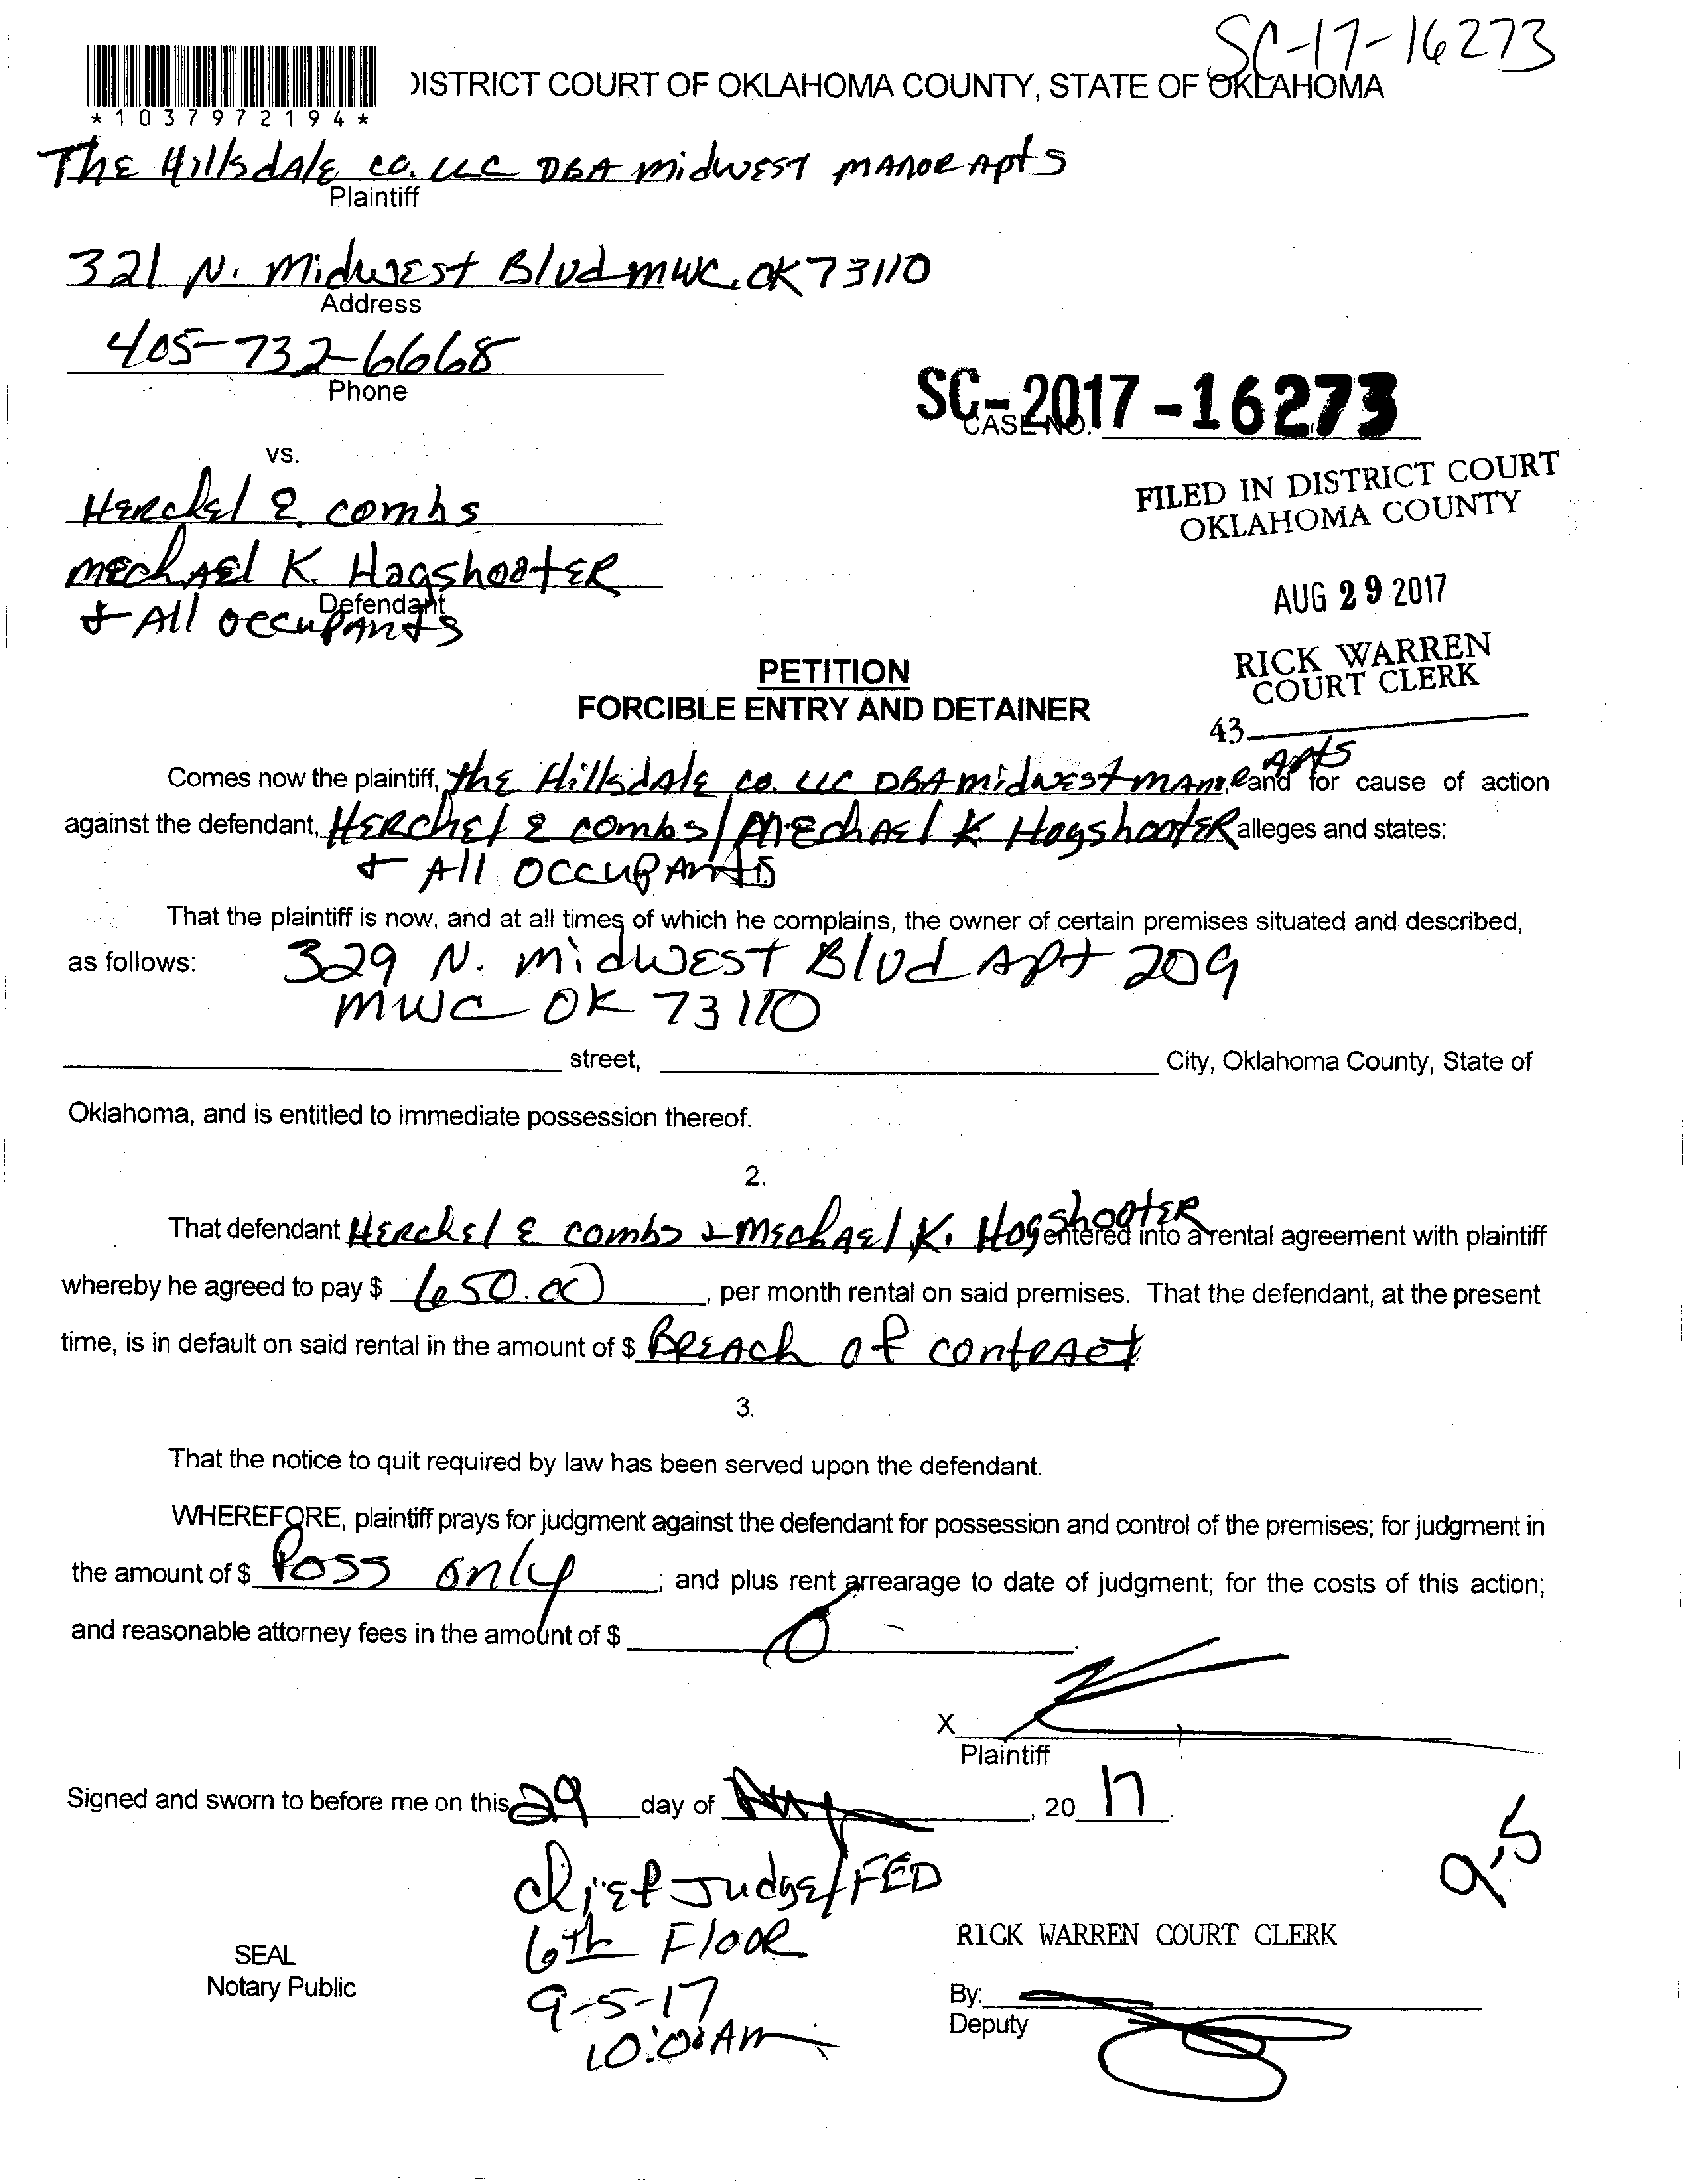 SC-17-16273
DISTRICT COURT OF OKLAHOMA COUNTY, STATE OF OKLAHOMA
*1037972194*
The Hillsdale co. LLC DBA midwest manor Apts
Plaintiff
321 N. Midwest Blvd mwc. OK 73110
Address
405-732-6668
Phone
SC-2017-16273
CASE NO.
vs.
FILED IN DISTRICT COURT
OKLAHOMA COUNTY
Herchel E combs
mechael K. Hogshooter
Defendant
+ All occupants
AUG 29 2017
RICK WARREN
COURT CLERK
43
PETITION
FORCIBLE ENTRY AND DETAINER
Comes now the plaintiff, the Hillsdale co. LLC DBA midwest manor Apts and for cause of action
against the defendant, Herchel E combs / mechael K Hogshooter alleges and states:
+ All occupants
That the plaintiff is now, and at all times of which he complains, the owner of certain premises situated and described,
as follows: 329 N. midwest Blvd Apt 209
mwc OK 73110
street, City, Oklahoma County, State of
Oklahoma, and is entitled to immediate possession thereof.
2.
That defendant Herchel E combs + mechael K. Hogshooter entered into a rental agreement with plaintiff
whereby he agreed to pay $ 650.00, per month rental on said premises. That the defendant, at the present
time, is in default on said rental in the amount of $ Breach of contract
3.
That the notice to quit required by law has been served upon the defendant.
WHEREFORE, plaintiff prays for judgment against the defendant for possession and control of the premises; for judgment in
the amount of $ Poss only; and plus rent arrearage to date of judgment; for the costs of this action;
and reasonable attorney fees in the amount of $ 0.
X
Plaintiff
Signed and sworn to before me on this 29 day of Aug, 20 17.
9-5
chief Judge/FED
6th Floor
9-5-17
10:00 Am
RICK WARREN COURT CLERK
SEAL
Notary Public
By:
Deputy